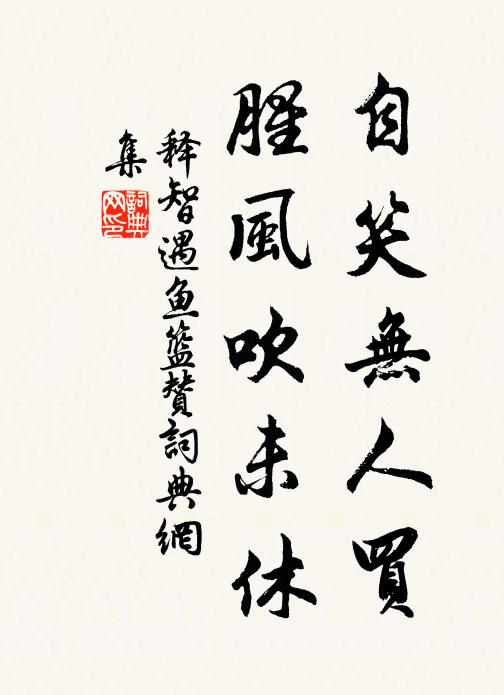 自笑無人買
腥風吹未休
釋智遇魚籃贊詞典網
集
詞典
网印